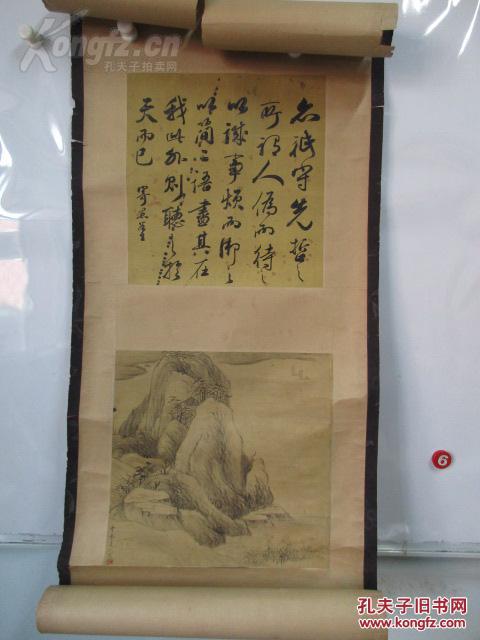 Kongfz.cn
孔夫子拍卖网
亦祗守先哲之
所謂人偽而待之
以誠事煩而御之
以簡二語盡其在
我此外則聽
天而已
6
孔夫子旧书网
www.kongfz.com